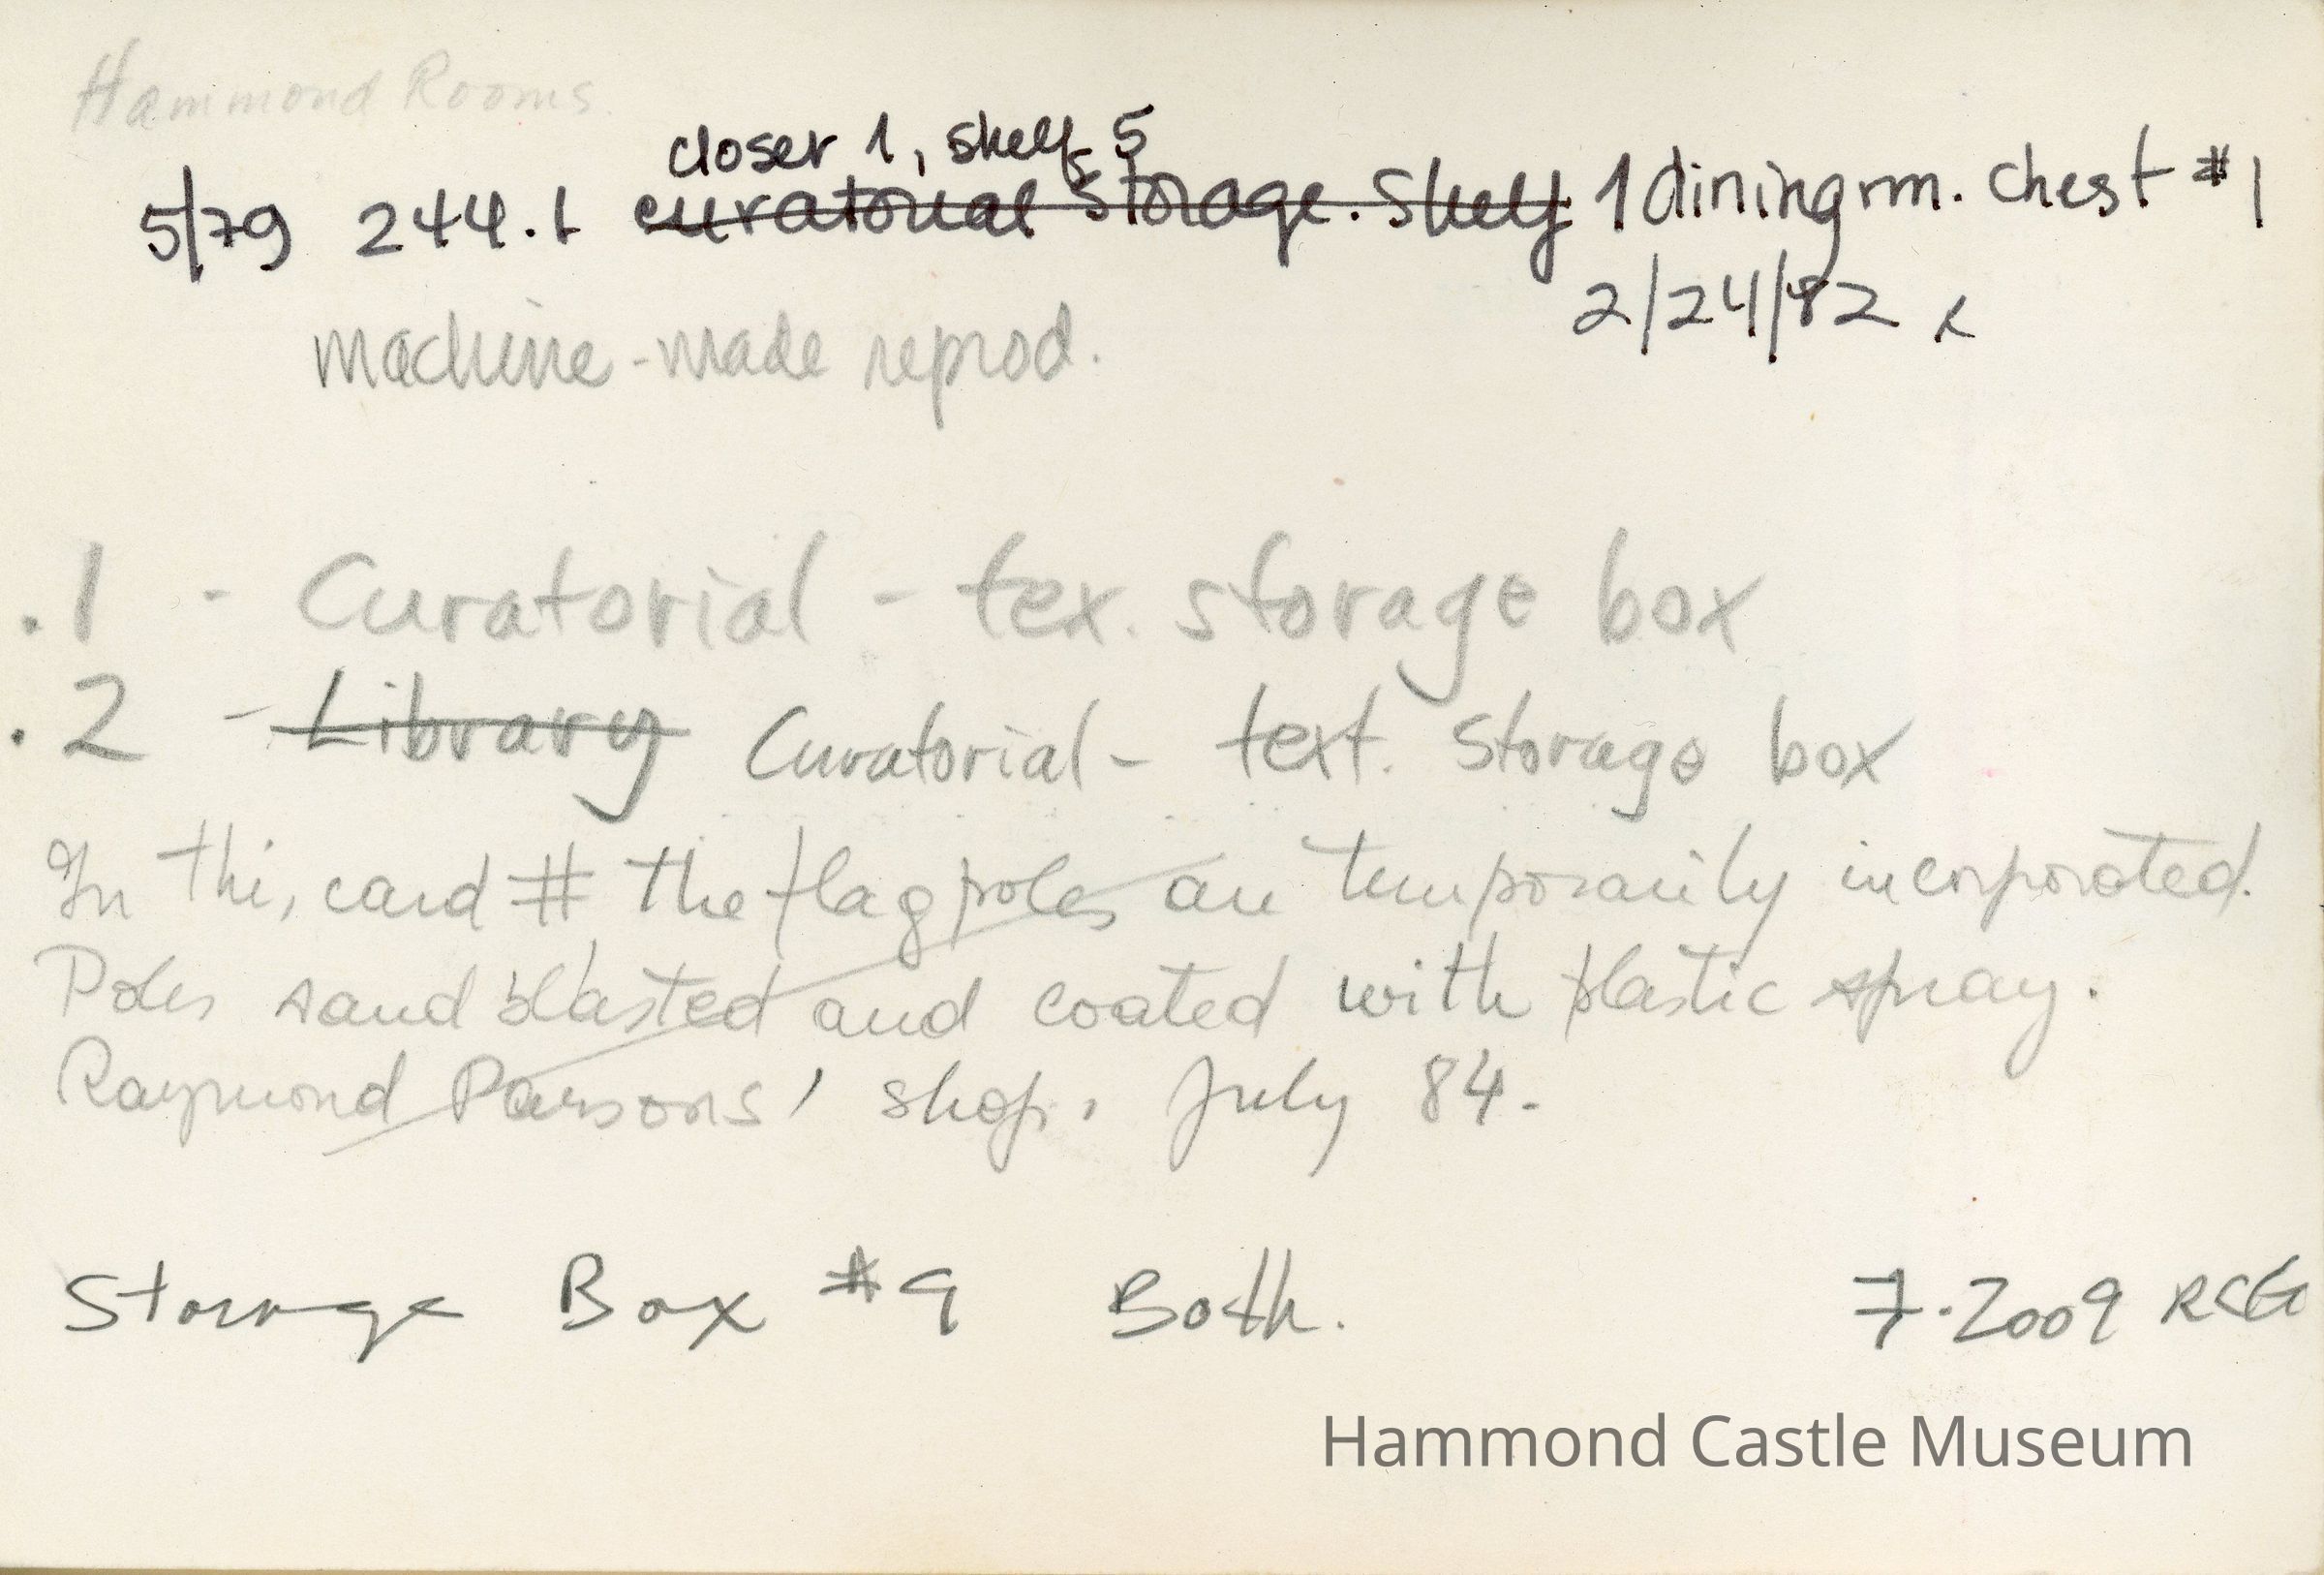 Hammond Rooms
closer 1, shelf 5
5/79 244.1 curatorial storage. Shelf 1 diningrm. Chest #1
2/24/82
machine-made reprod.
.1 - Curatorial - tex. storage box
.2 - Library Curatorial - text. storage box
In this card # the flag poles are temporarily incorporated.
Poles sand blasted and coated with plastic spray.
Raymond Parsons' shop, July 84.
Storage Box #9 Both. 7.2009 RCG
Hammond Castle Museum